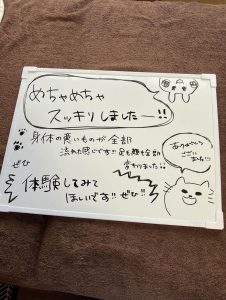 めちゃめちゃ
スッキリしましたー!!
身体の悪いものが全部
流れた感じです!! 足も顔も全部
変わりました!!
ぜひ
体験してみて
ほしいです!! ぜひ!!
ありがとう
ござい
ました!!